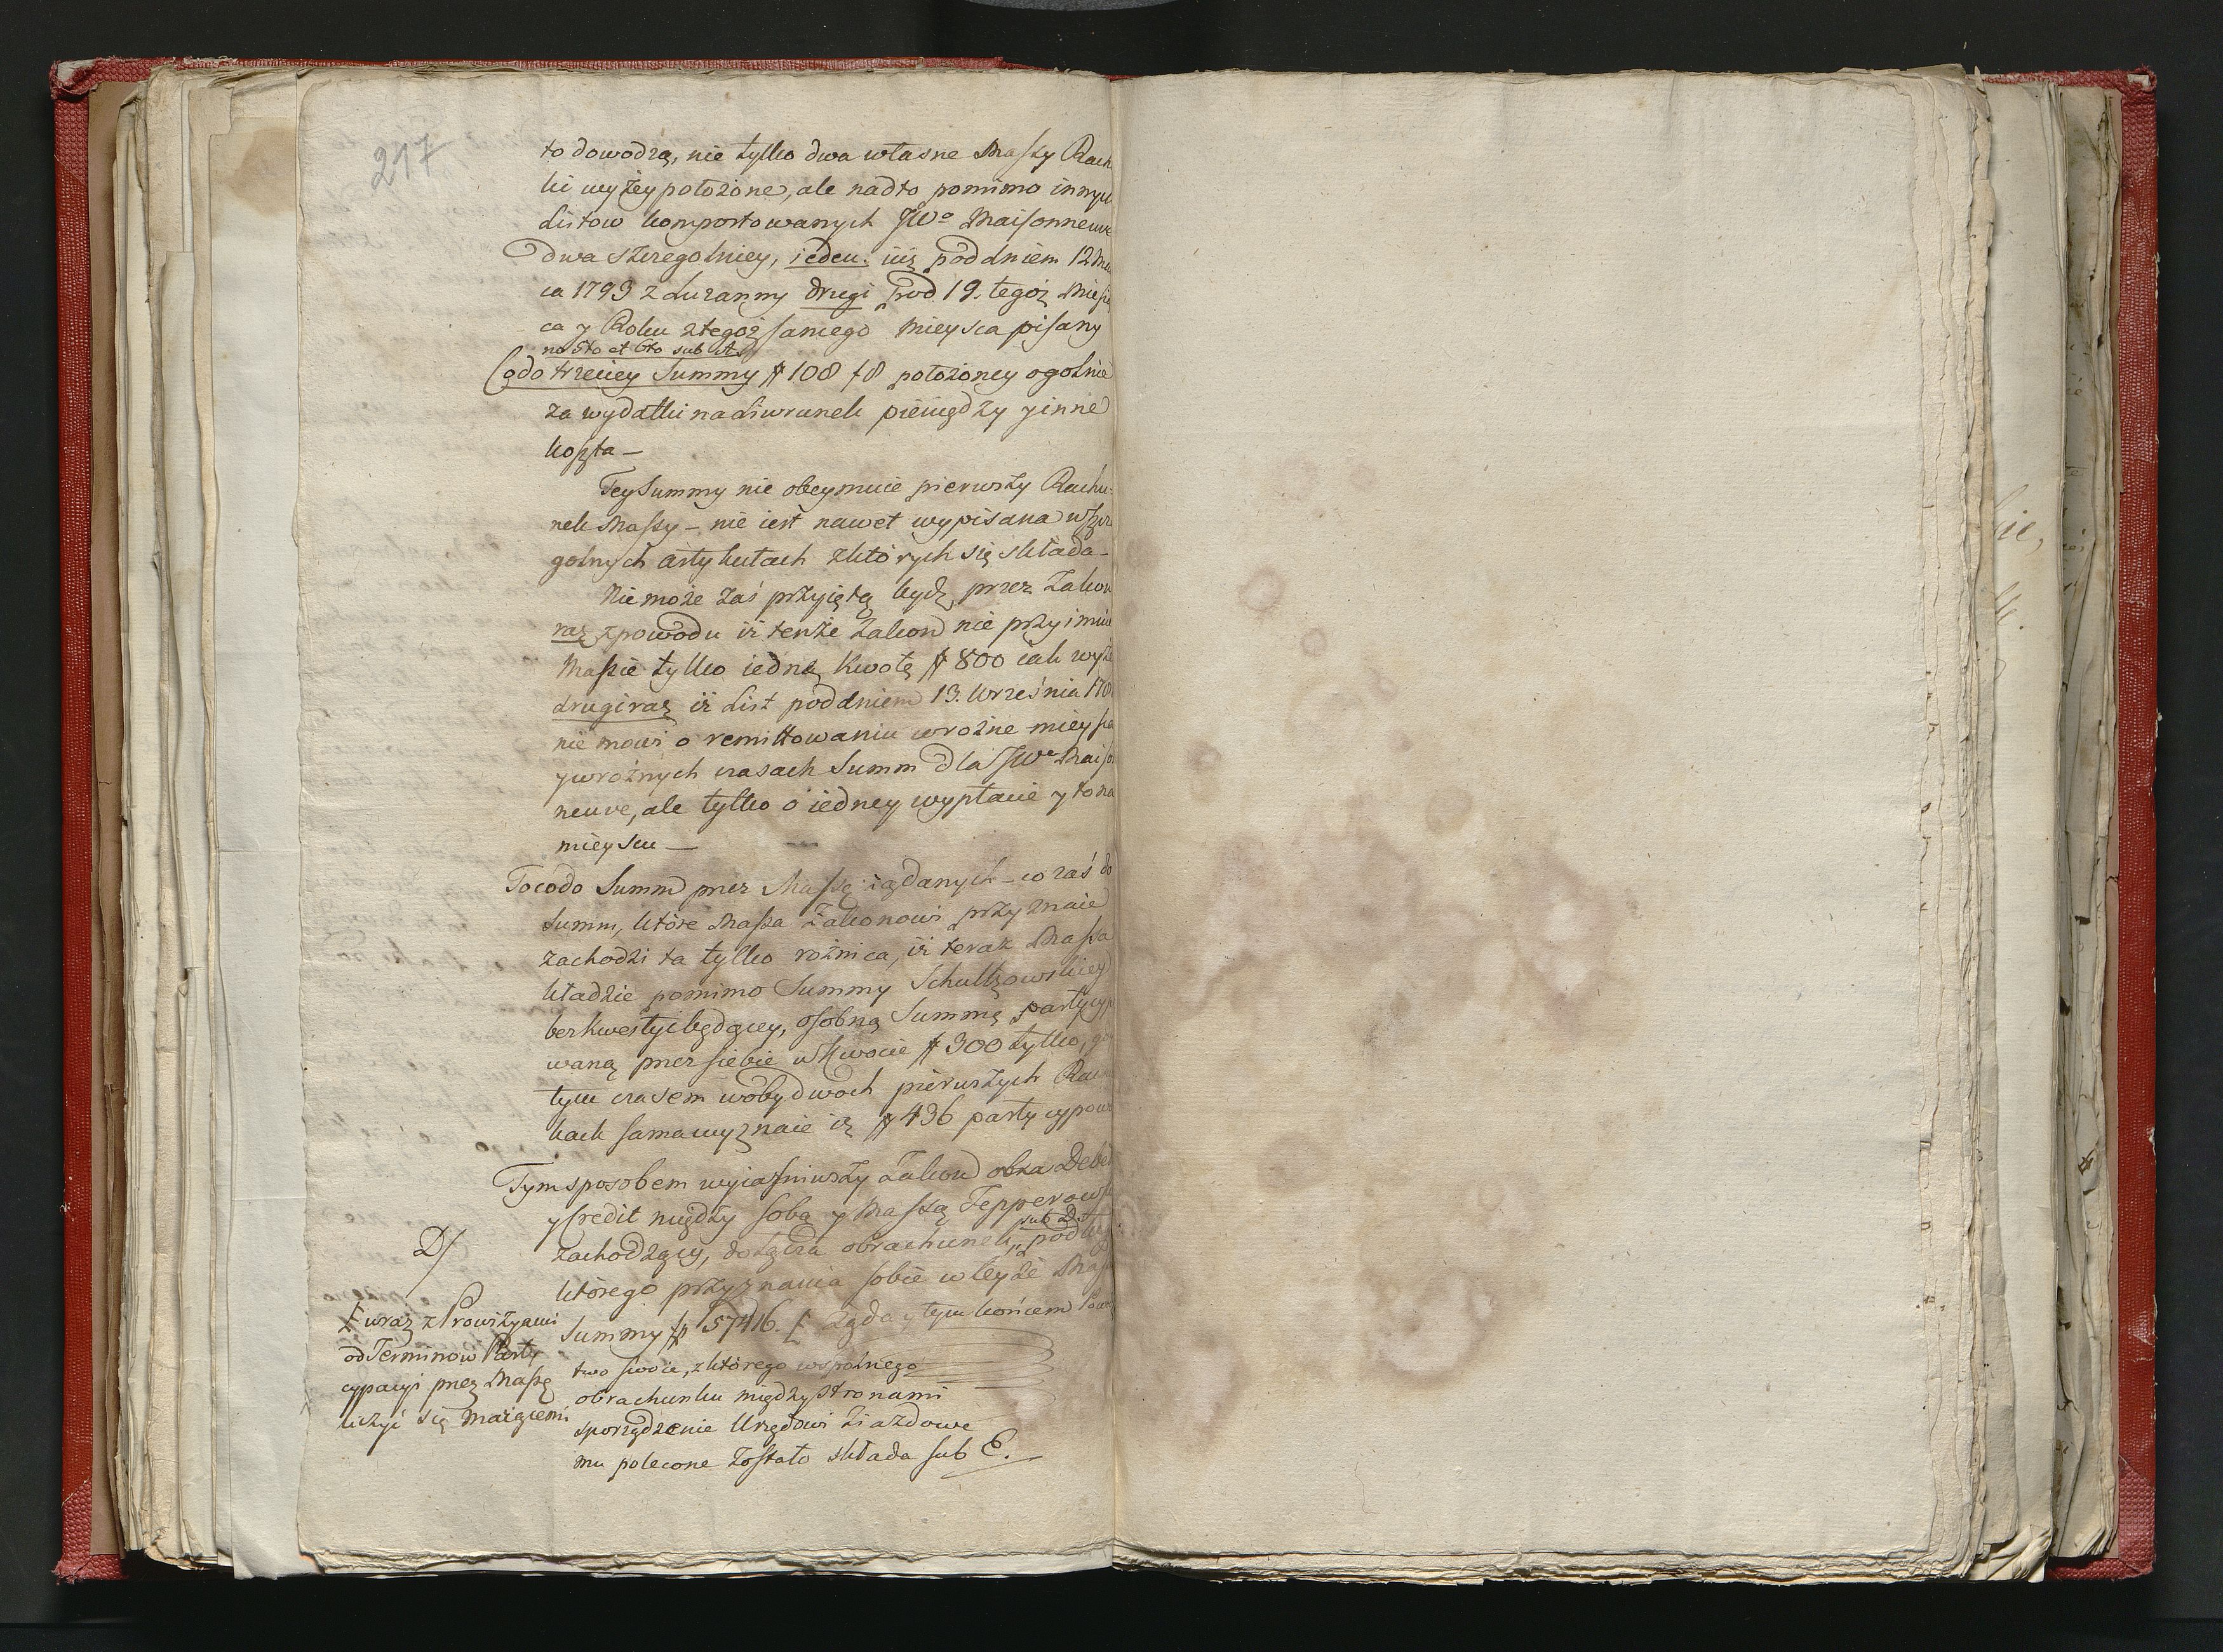 217
to dowodzą, nie tylko dwa własne Massy Rach
ki wyżey położone, ale nadto pomimo innych
Listow komportowanych JWo Maisonneuve
dwa szeregolniey, ieden: iuż pod dniem 12 Ma
ca 1793 z Luzanny drugi pod 19. tegoż Miesią
ca y Roku z tegoż samego Mieysca pisany
no 5to et 6to sub A.
Co do trzeciey Summy # 108 f 8 położoney ogolnie
za wydatki na Liwrunek pieniędzy y inne
koszta —
Tey Summy nie obeymuie pierwszy Rachu:
nek Massy – nie iest nawet wypisana w szcze
golnych artykułach z których się składa –
Nie może zaś przyiętą bydź przez Zakon
raz z powodu iż tenże Zakon nie przyimuie
Massie tylko iedną kwotę # 800 iak wyże
drugi raz iż List pod dniem 13. Września 17
nie mowi o remittowaniu w rożne mieysca
y w rożnych czasach Summ dla JWo Maison
neuve, ale tylko o iedney wypłacie y to na
mieyscu —
To co do Summ przez Massę żądanych – co zaś do
Summ, które Massa Zakonowi przyznaie
zachodzi ta tylko rożnica, iż teraz Massa
kładzie pomimo Summy Schultzowskiey
bez kwestyi będącey, osobną Summę partycypo
waną przez siebie w kwocie # 300 tylko, gdy
tym czasem w obydwoch pierwszych Rachun
kach sama wyznaie iż # 436 partycypowa
Tym sposobem wyiaśniwszy Zakon obza Debet
y Credit między sobą y Massą Tepperowską
sub D.
zachodzący, dołącza obrachunek pod
D/
którego przyznania sobie w teyże Massie
Summy # 5746. [ żąda y tym końcem
[ wraz z Prowizyami
od Terminow Party
cypacyi przez Massę
liczyć się maiącemi
two swoie, z którego wspolnego
obrachunku między stronami
sporządzenie Urzędowi Ziazdowe
mu polecone zostało składa sub E. —